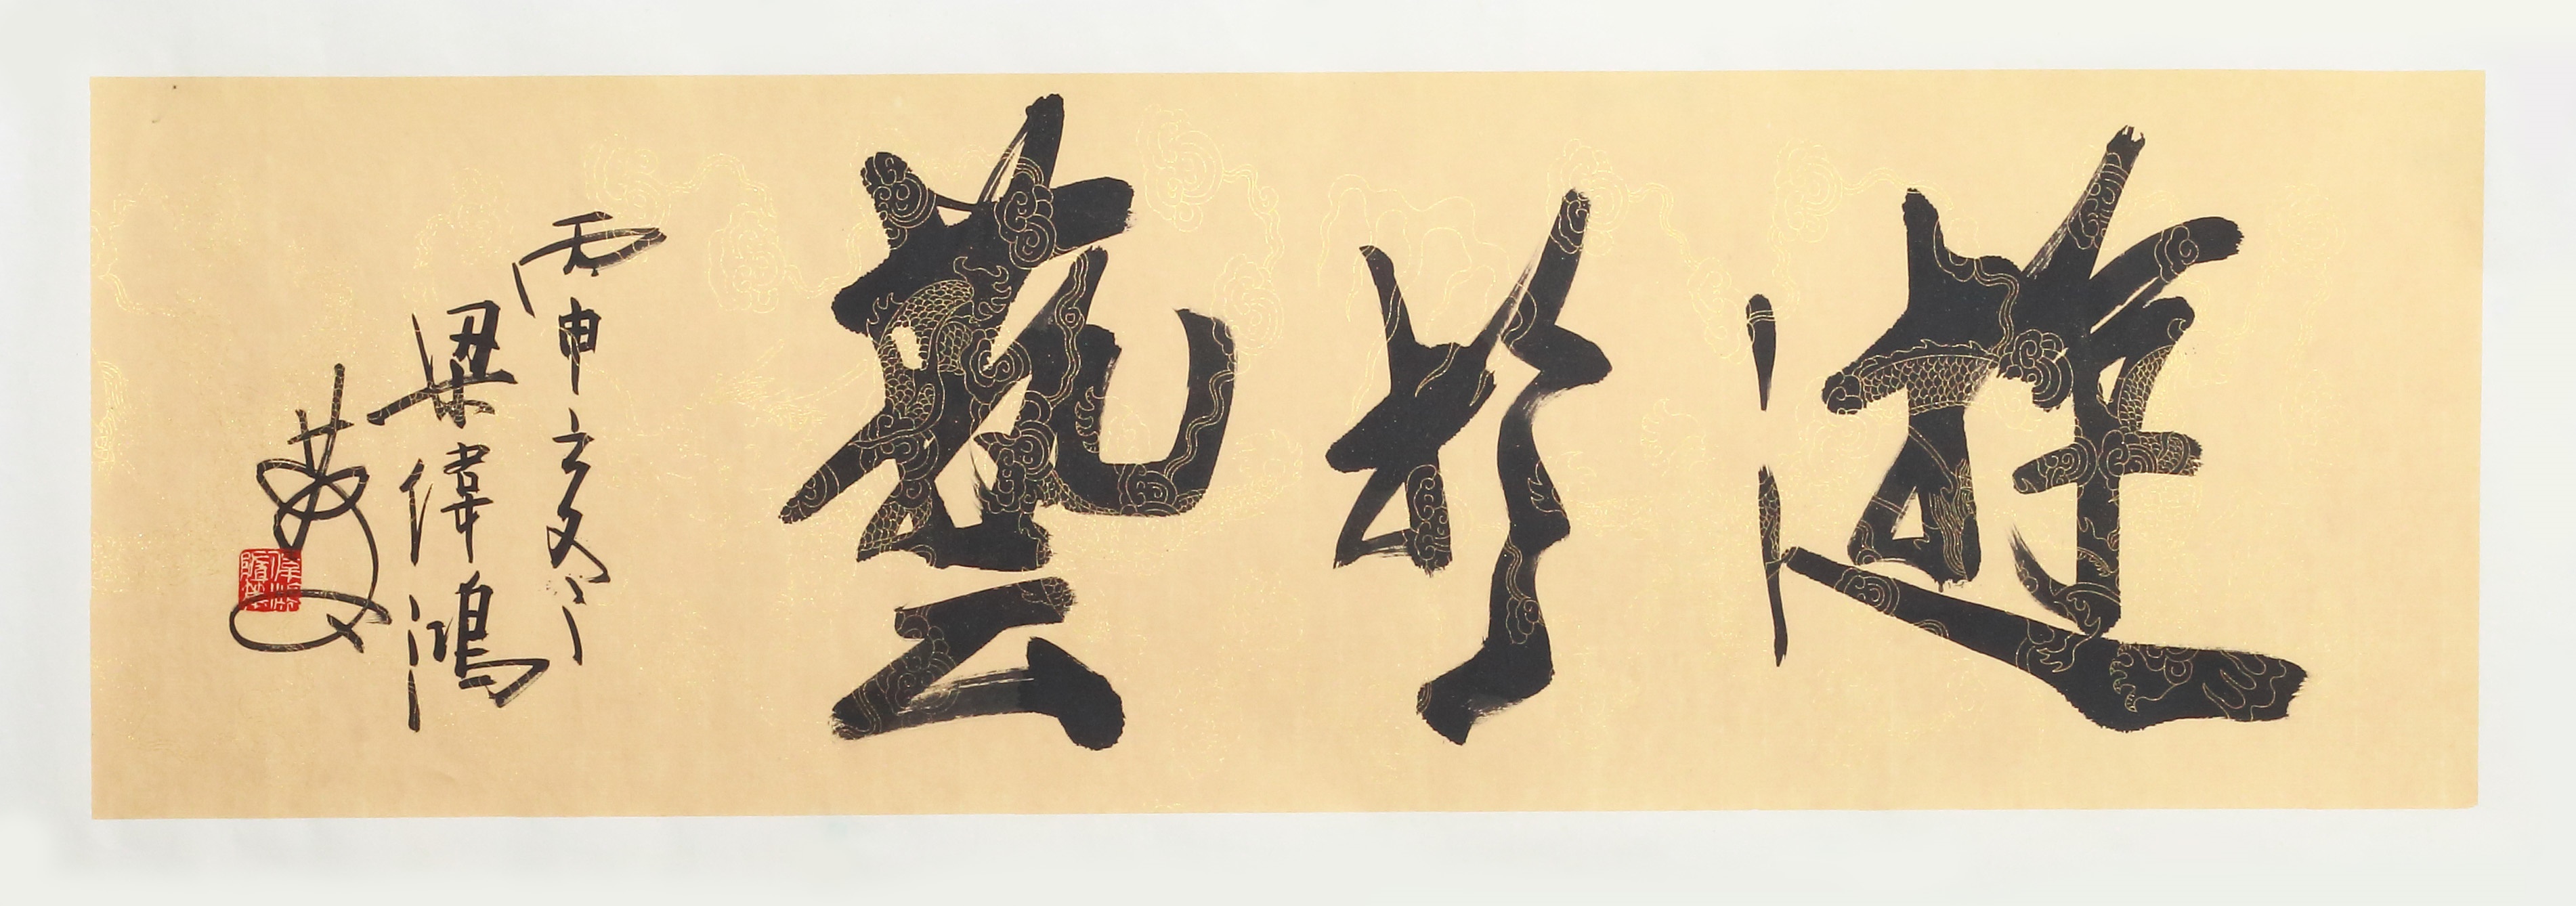 遊於藝
丙申玄冬
梁偉鴻
書